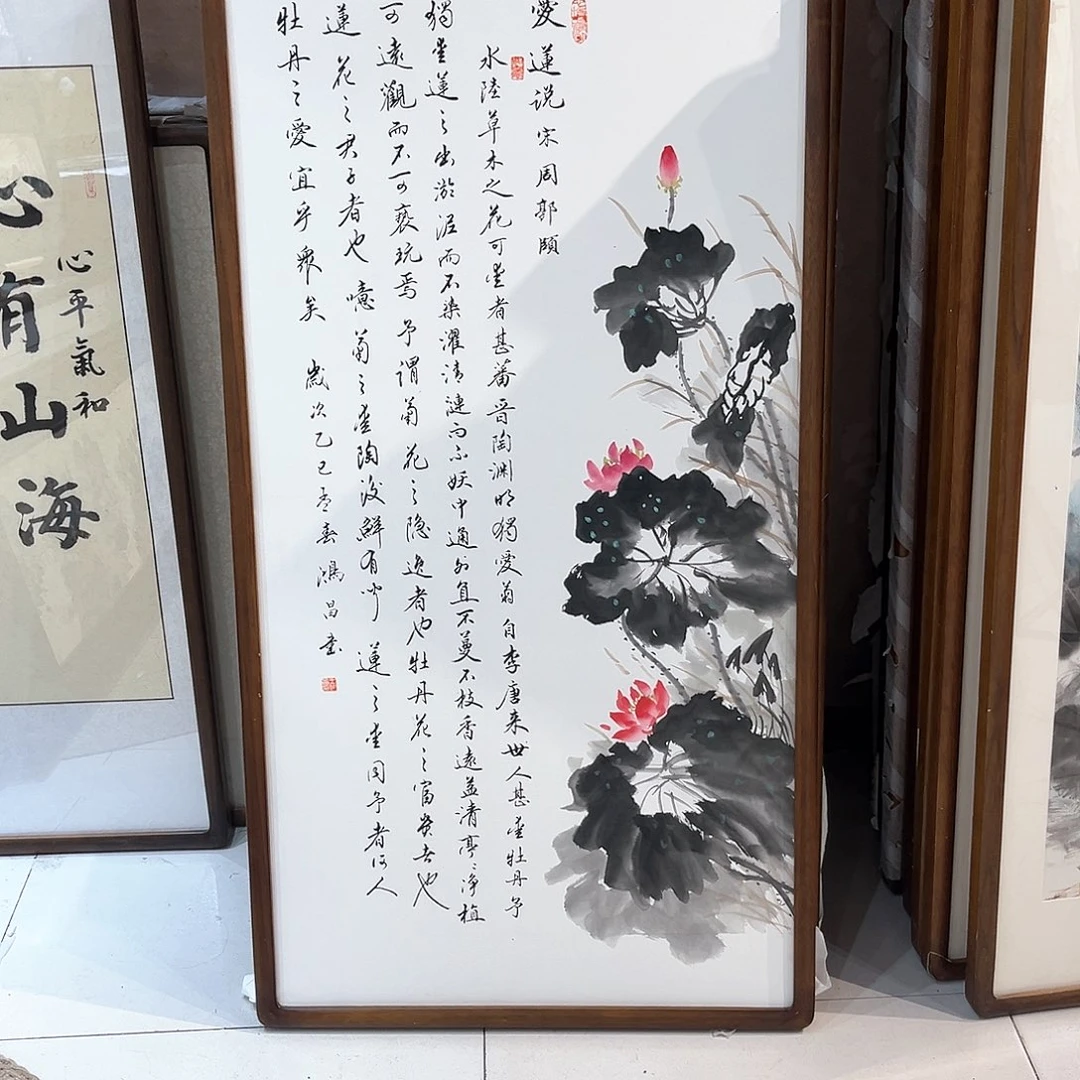 愛蓮说 宋 周郭頤
水陸草木之花可愛者甚蕃晋陶渊明獨爱菊自李唐来世人甚愛牡丹予
獨愛蓮之出淤泥而不染濯清漣而不妖中通外直不蔓不枝香遠益清亭〻浄植
可遠觀而不可亵玩焉予謂菊花之隐逸者也牡丹花之富贵者也
蓮花之君子者也噫菊之愛陶後鮮有闻蓮之愛同予者何人
牡丹之愛宜乎衆矣 歲次乙巳孟春鴻昌書
心平氣和
心有山海